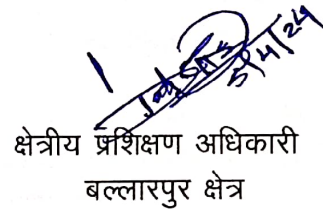 5/4/24
क्षेत्रीय प्रशिक्षण अधिकारी
बल्लारपुर क्षेत्र